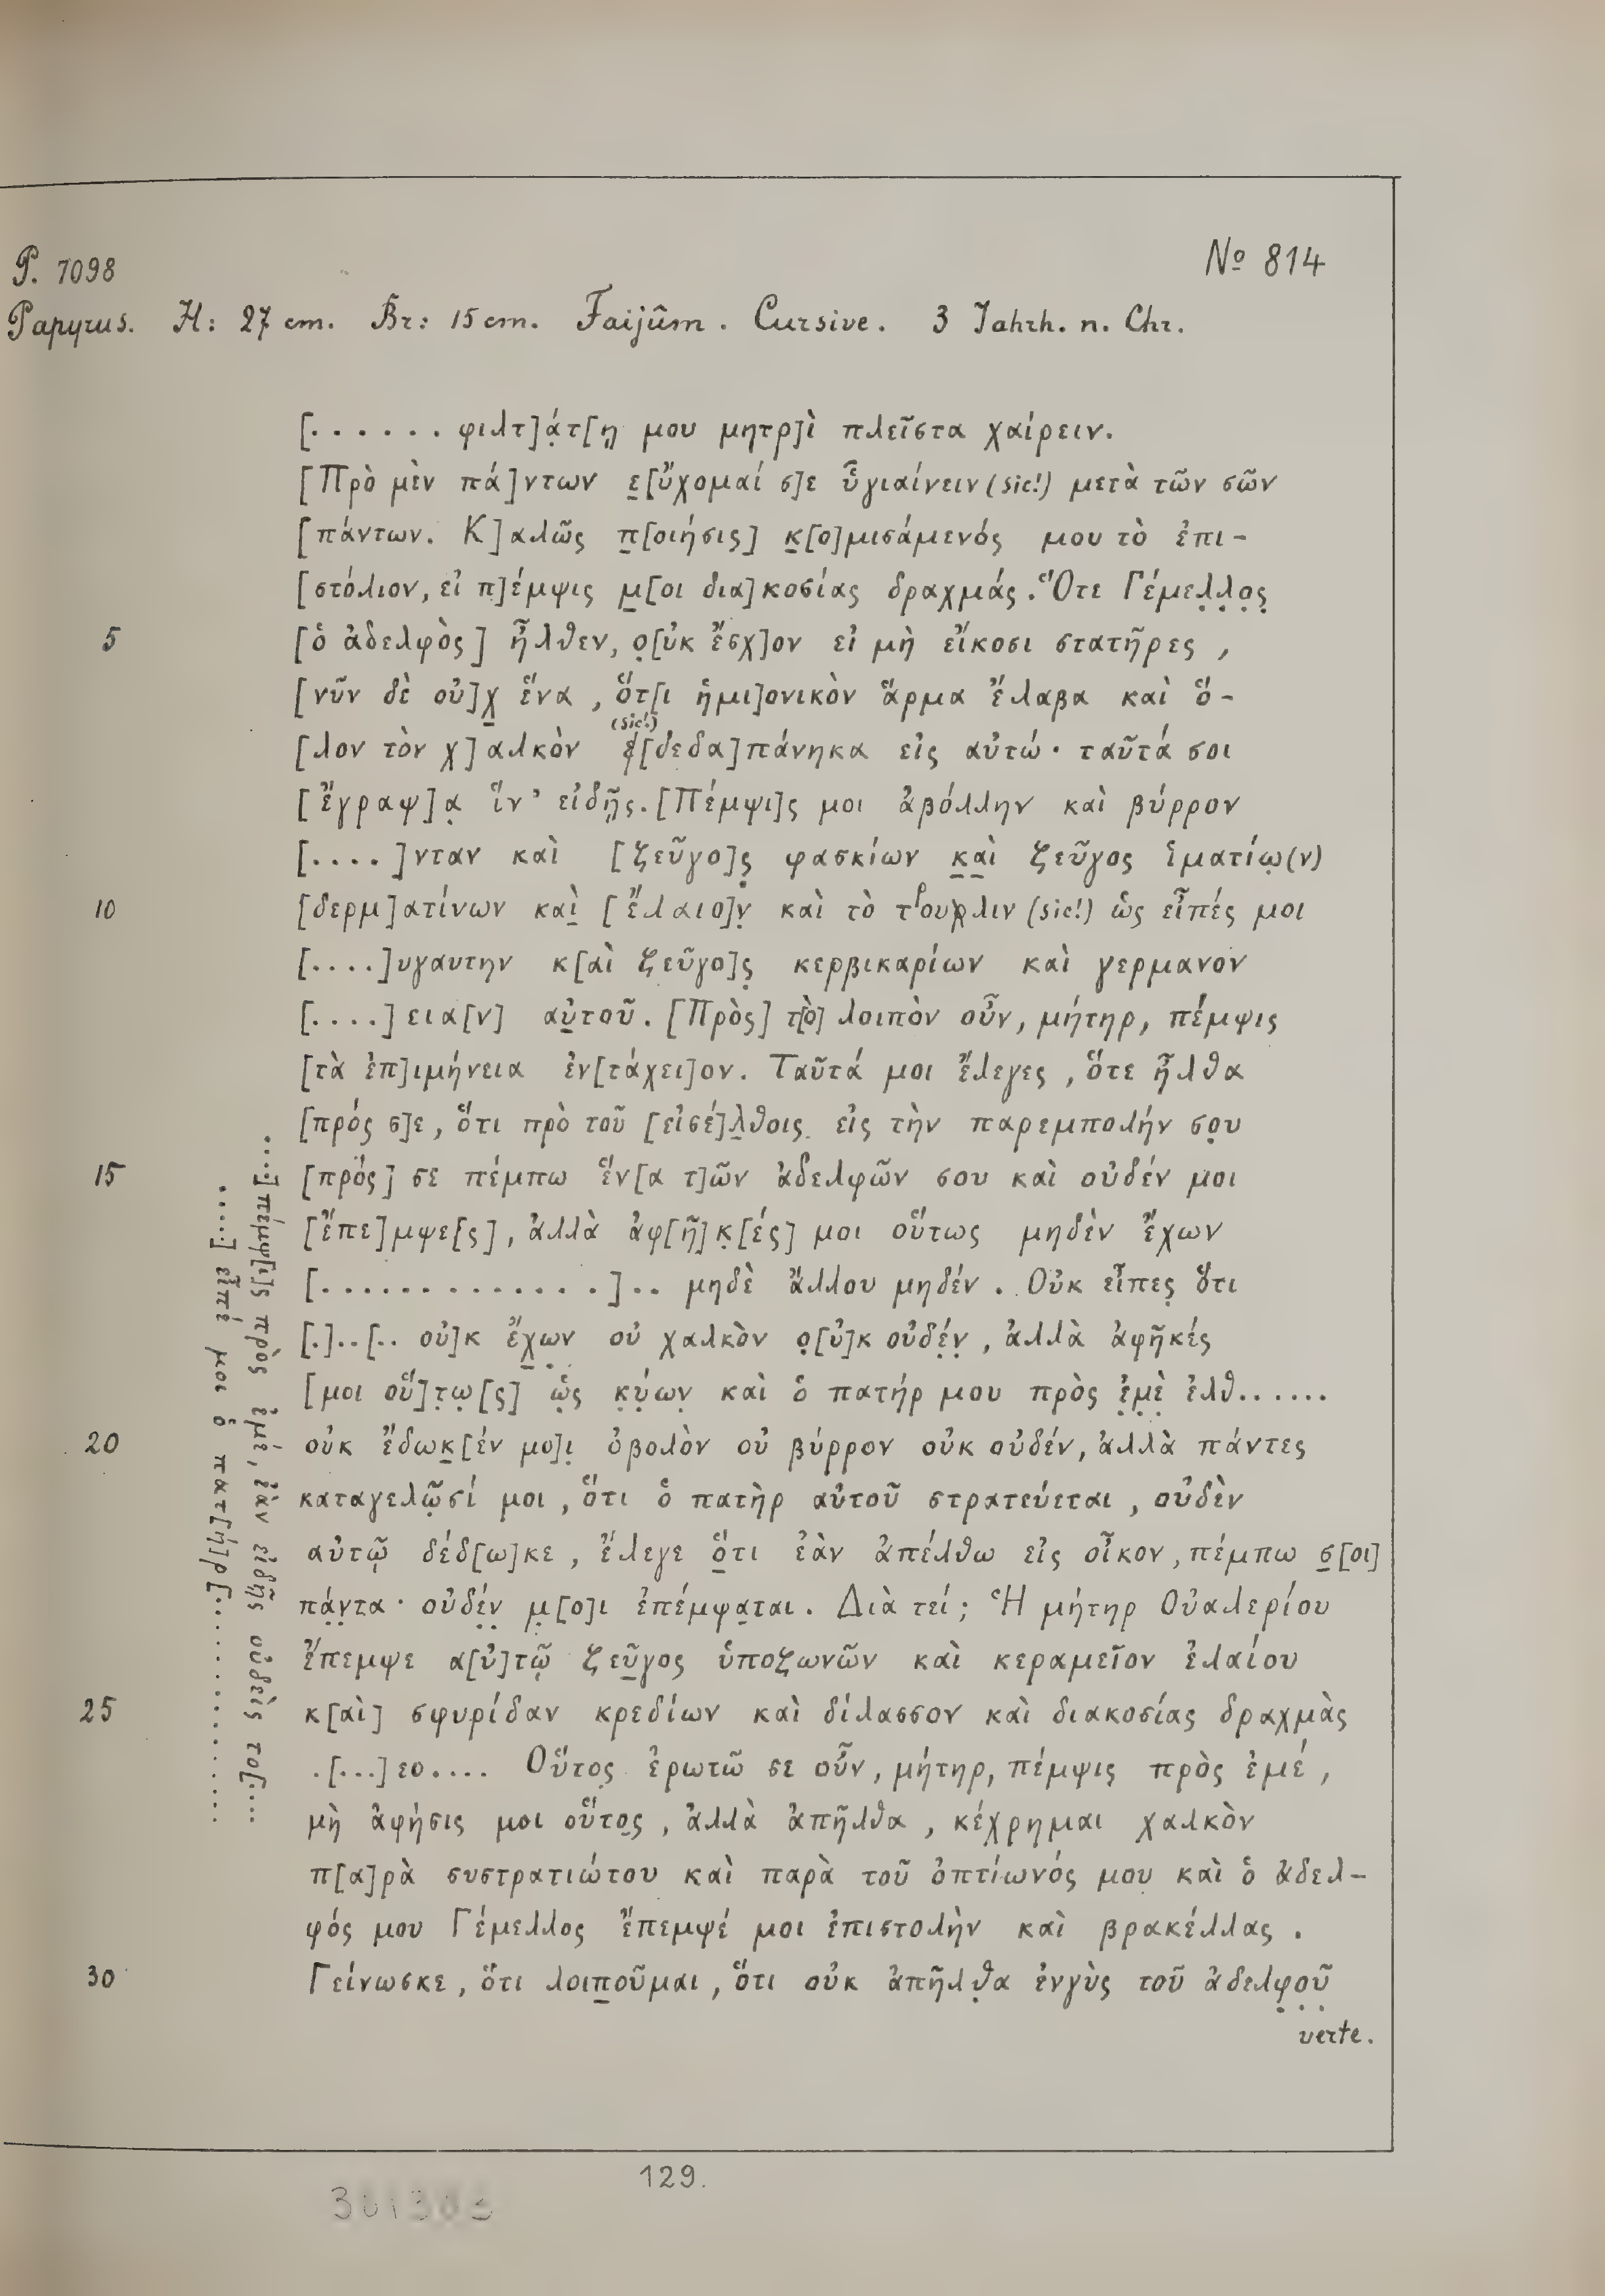 P. 7098
No 814
Papyrus. H: 27 cm. Br: 15 cm. Faijûm. Cursive. 3 Jahrh. n. Chr.
[. . . . . . φιλτ]άτ[ῃ μου μητρ]ὶ πλεῖστα χαίρειν.
[Πρὸ μὲν πά]ντων ε[ὔχομαί σ]ε ὑγιαίνειν (sic!) μετὰ τῶν σῶν
[πάντων. Κ]αλῶς π[οιήσις] κ[ο]μισάμενός μου τὸ ἐπι-
[στόλιον, εἰ π]έμψις μ[οι δια]κοσίας δραχμάς. Ὅτε Γέμελλος
5 [ὁ ἀδελφὸς] ἦλθεν, ο[ὐκ ἔσχ]ον εἰ μὴ εἴκοσι στατῆρες,
[νῦν δὲ οὐ]χ ἕνα, ὅτ[ι ἡμι]ονικὸν ἅρμα ἔλαβα καὶ ὅ-
(sic!)
[λον τὸν χ]αλκὸν ἐ[δεδα]πάνηκα εἰς αὐτώ· ταῦτά σοι
[ἔγραψ]α ἵν' εἰδῇς. [Πέμψι]ς μοι ἀβόλλην καὶ βύρρον
[....]νταν καὶ [ζεῦγο]ς φασκίων καὶ ζεῦγος ἱματίω(ν)
10 [δερμ]ατίνων καὶ [ἔλαιο]ν καὶ τὸ τρουλλιν (sic!) ὡς εἶπές μοι
[....]υγαυτην κ[αὶ ζεῦγο]ς κερβικαρίων καὶ γερμανον
[....]εια[ν] αὐτοῦ. [Πρὸς] τ[ὸ] λοιπὸν οὖν, μήτηρ, πέμψις
[τὰ ἐπ]ιμήνεια ἐν[τάχει]ον. Ταῦτά μοι ἔλεγες, ὅτε ἦλθα
[πρός σ]ε, ὅτι πρὸ τοῦ [εἰσέ]λθοις εἰς τὴν παρεμπολήν σου
15 [πρός] σε πέμπω ἕν[α τ]ῶν ἀδελφῶν σου καὶ οὐδέν μοι
[ἔπε]μψε[ς], ἀλλὰ ἀφ[ῆ]κ[ές] μοι οὕτως μηδὲν ἔχων
[. . . . . . . . . . . . .].. μηδὲ ἄλλου μηδέν. Οὐκ εἶπες ὅτι
[.]..[.. οὐ]κ ἔχων οὐ χαλκὸν ο[ὐ]κ οὐδέν, ἀλλὰ ἀφῆκές
[μοι οὕ]τω[ς] ὡς κύων καὶ ὁ πατήρ μου πρὸς ἐμὲ ἐλθ......
20 οὐκ ἔδωκ[έν μο]ι ὀβολὸν οὐ βύρρον οὐκ οὐδέν, ἀλλὰ πάντες
καταγελῶσί μοι, ὅτι ὁ πατὴρ αὐτοῦ στρατεύεται, οὐδὲν
αὐτῷ δέδ[ω]κε, ἔλεγε ὅτι ἐὰν ἀπέλθω εἰς οἶκον, πέμπω σ[οι]
πάντα· οὐδέν μ[ο]ι ἐπέμψαται. Διὰ τεί; Ἡ μήτηρ Οὐαλερίου
ἔπεμψε α[ὐ]τῷ ζεῦγος ὑποζωνῶν καὶ κεραμεῖον ἐλαίου
25 κ[αὶ] σφυρίδαν κρεδίων καὶ δίλασσον καὶ διακοσίας δραχμὰς
.[...]εο.... Οὕτος ἐρωτῶ σε οὖν, μήτηρ, πέμψις πρὸς ἐμέ,
μὴ ἀφήσις μοι οὕτος, ἀλλὰ ἀπῆλθα, κέχρημαι χαλκὸν
π[α]ρὰ συστρατιώτου καὶ παρὰ τοῦ ὀπτίωνός μου καὶ ὁ ἀδελ-
φός μου Γέμελλος ἔπεμψέ μοι ἐπιστολὴν καὶ βρακέλλας.
30 Γείνωσκε, ὅτι λοιποῦμαι, ὅτι οὐκ ἀπῆλθα ἐνγὺς τοῦ ἀδελφοῦ
verte.
....] πέμψ[ι]ς πρὸς ἐμέ, ἐὰν εἰδῇς οὐδεὶς το[....
....[ εἶπέ μοι ὁ πατ[ή]ρ].............
129.